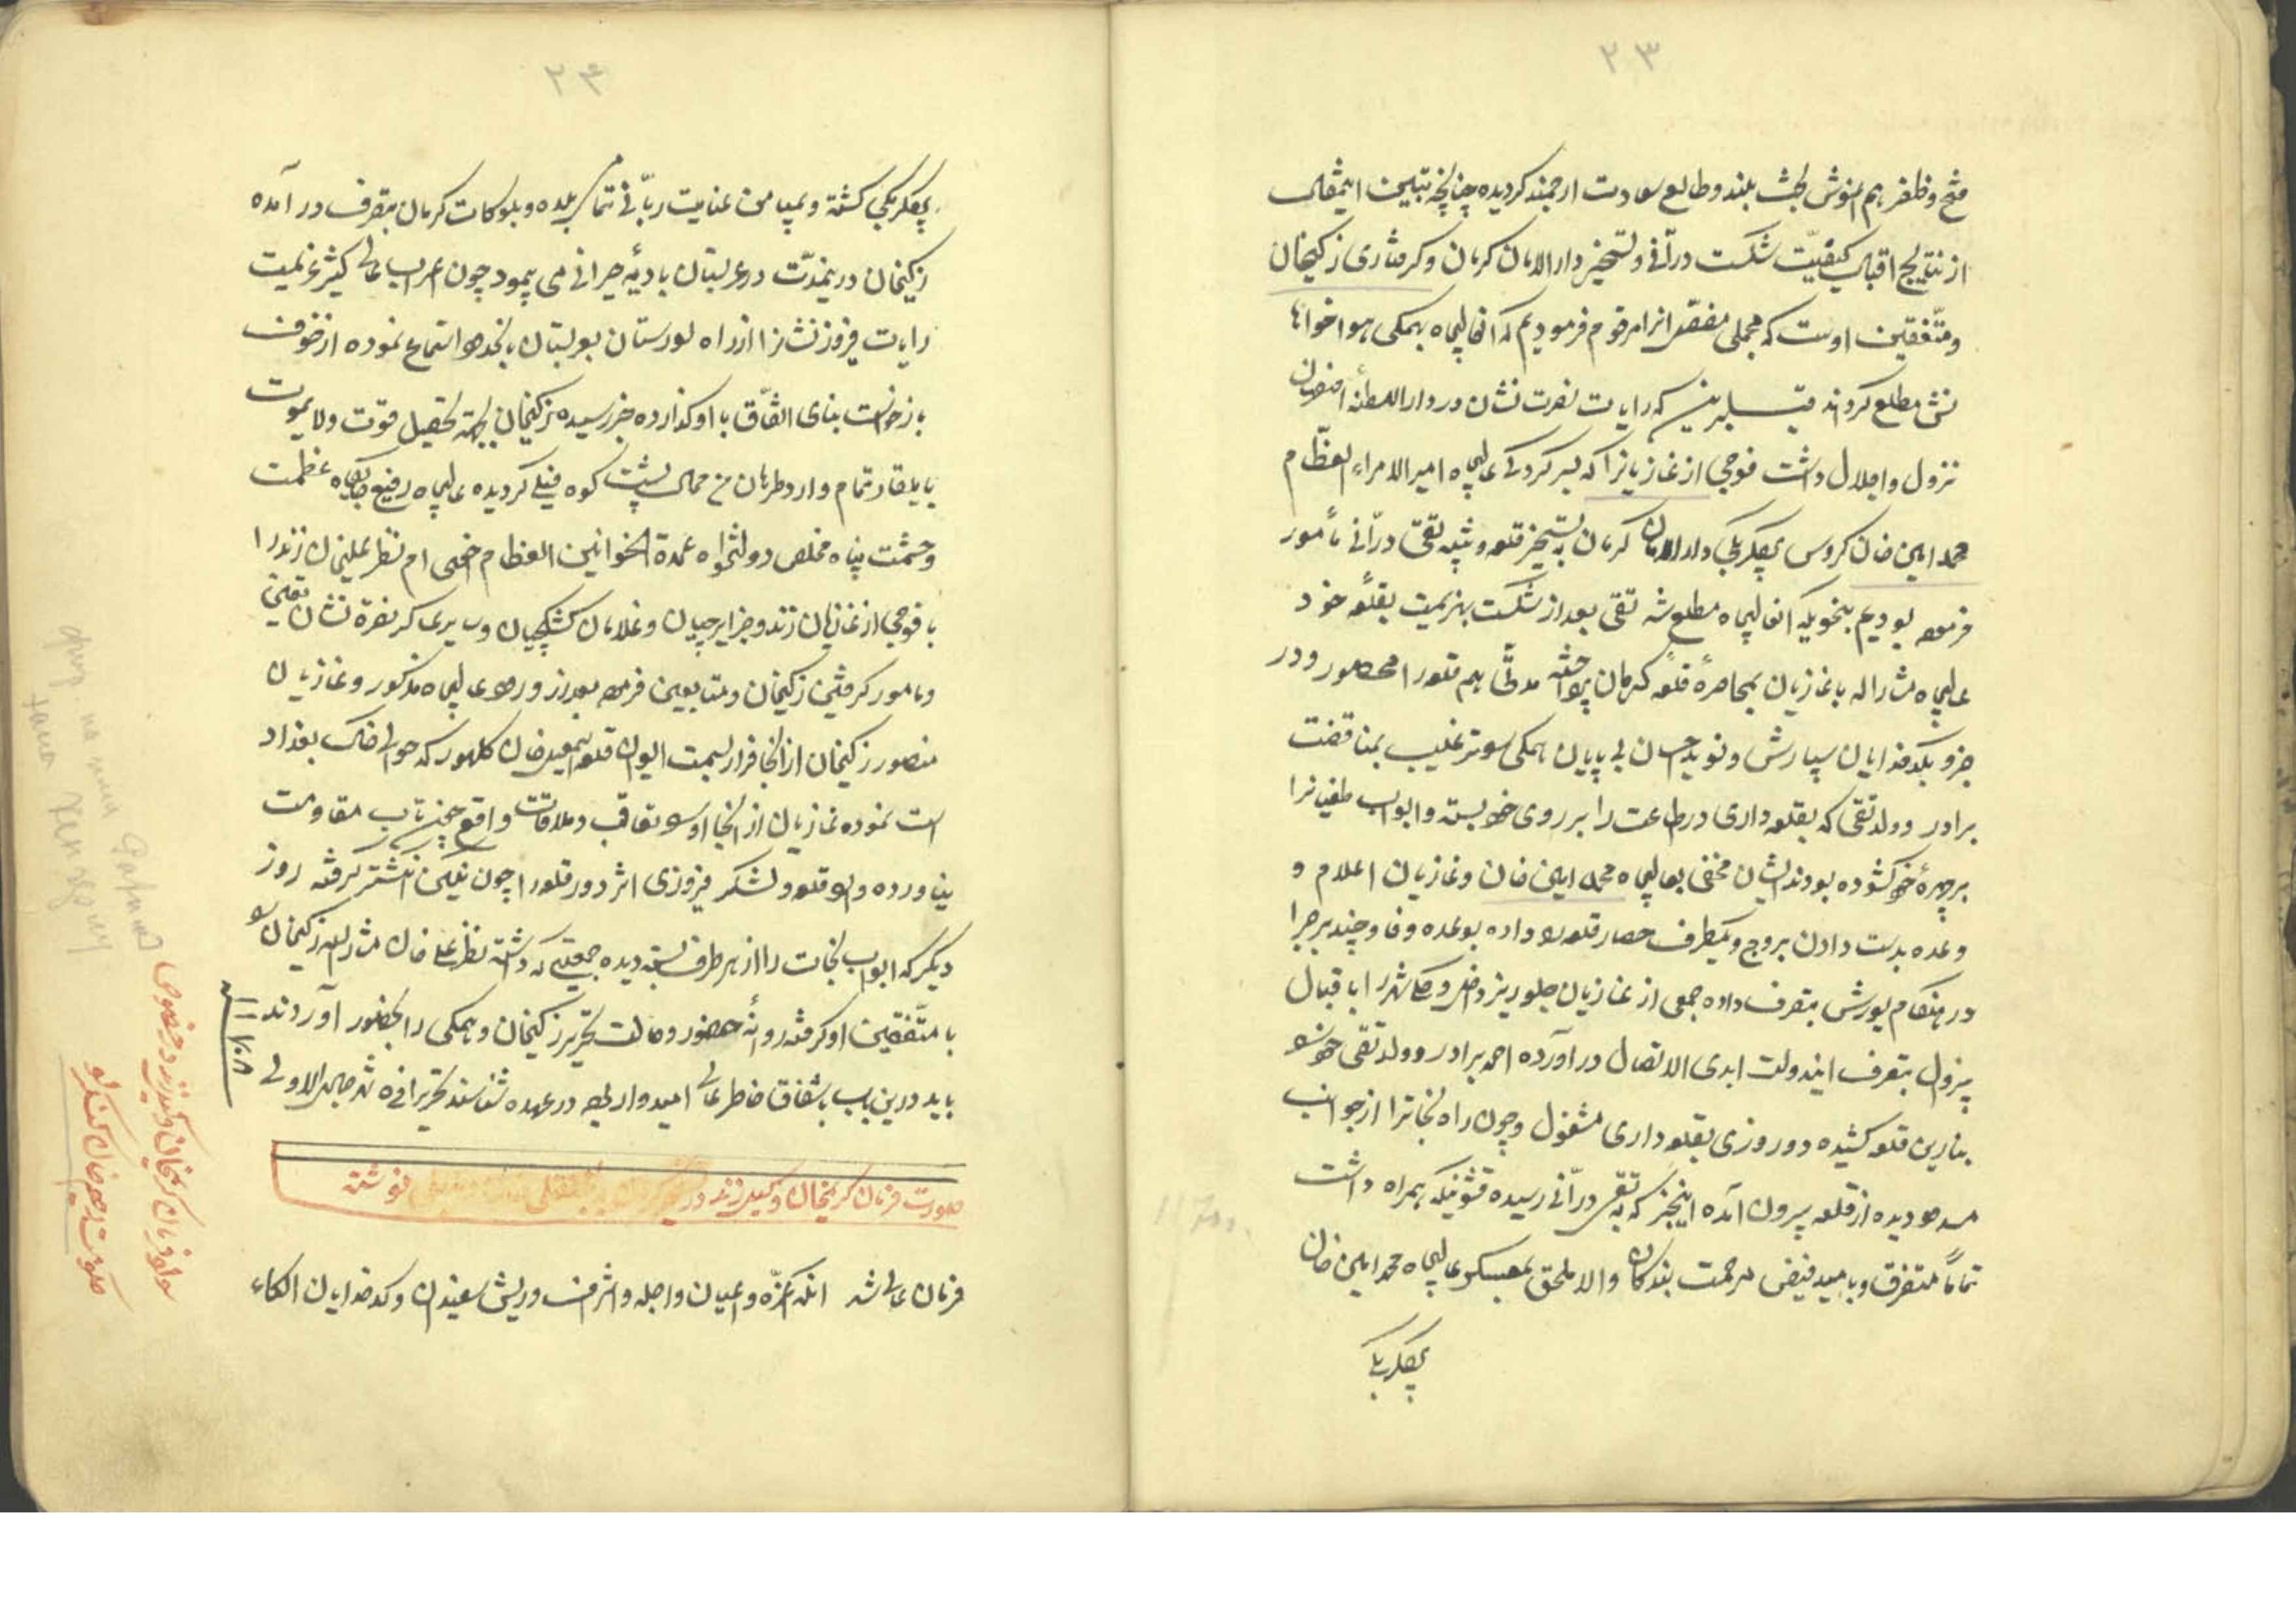 ۲۳
فتح و ظفر هم اغوش بخت بلند و طالع سعادت ارجمند گردیده چنانچه تبیین اینمقال
از نتایج اقبال کیفیت شکست درآنی و تسخیر دارالامان کرمان و گرفتاری زکیخان
و متفقین اوست که مجملی مفصر انرا مرقوم فرمودیم که انعالیجاه بهمکی هواخواهان
مطلع گرداند قبل برین که رایات نصرت نشان در دارالسلطنه اصفهان
نزول و اجلال داشت فوجی از غازیانرا که بسرکردگی عالیجاه امیرالامراء العظام
محمد امین خان کروس بیگلربیگی دارالامان کرمان به تسخیر قلعه و تنبیه تقی درآنی مأمور
فرموده بودیم بنحویکه انعالیجاه مطلع شد تقی بعد از شکست بهزیمت بقلعه خود
عالیجاه مشارالیه با غازیان بمحاصره قلعه کرمان پرداخته مدتی هم قلعه را محصور و در
جزو بکدخدایان سپارش و نوید احسان بی پایان همکی را ترغیب بمناقضت
برادر و ولد تقی که بقلعه داری در طاعت را بر روی خود بسته و ابواب طغیانرا
بر چهره خود کشوده بودند ایشان مخفی بعالیجاه محمد امین خان و غازیان اعلام و
وعده بدست دادن بروج و یکطرف حصار قلعه را داده بوعده وفا و چند برجرا
در هنگام یورش بتصرف داده جمعی از غازیان جلوریز داخل و شهر را باقبال
بیزوال بتصرف ایندولت ابدی الاتصال درآورده احمد برادر و ولد تقی خود را
بنارین قلعه کشیده دو روزی بقلعه داری مشغول و چون راه نجاترا از جوانب
مسدود دیده از قلعه بیرون آمده اینخبر که به تقی درآنی رسیده قشونیکه همراه داشت
تماماً متفرق و بامید فیض مرحمت بندگان والا ملحق بمعسکر عالیجاه محمد امین خان
بیگلربیگی
۲۴
بیگلربیگی کشته و بمیامن عنایت ربانی تمامی بلده و بلوکات کرمان بتصرف درآمده
زکیخان درینمدت در عربستان بادیه حیرانی می پیمود چون اعراب عالی کیش عزیمت
رایات فیروز نشانرا از راه لورستان بعربستان بانحدود استماع نموده از خوف
بازخواست بنای النفاق با او گذارده خبر رسیده زکیخان بجهة تحصیل قوت ولایموت
بایلغار تمام وارد طرهان من محال پشت کوه فیلی گردیده عالیجاه رفیع جایگاه عظمت
و حشمت پناه مخلص دولتخواه عمدة الخوانین العظام نظر علیخان زند را
با فوجی از غازیان زند و جزایرچیان و غلامان کشیکچیان و سایر عساکر نصرة نشان تعیین
و مامور گرفتن زکیخان و متابعین فرموده بعد از ورود عالیجاه مذکور و غازیان
منصور زکیخان از انجا فرار بسمت ایوان قلعه خان کلهور که حوالی خاک بغداد
است نموده غازیان از انجا او را تعاقب و ملاقات واقع تاب مقاومت
نیاورده داخل قلعه و لشکر فیروزی اثر دور قلعه را چون نکین انکشتر گرفته روز
دیگر که ابواب نجات را از هر طرف بسته دیده جمعیتی که داشته نظر علی خان مشارالیه زکیخان را
با متفقین او گرفته روانهٔ حضور و حالت تحریر زکیخان و همکی را بحضور آوردند
باید درین باب باشفاق خاطر عالی امیدوار بوده در عهده شناسند تحریرا فی شهر جمادی الاولی
۱۱۷۸ سنه
صورت فرمان کریمخان وکیل زند در نوشته
فرمان عالی شد انکه اعزه و اعیان و اجله و اشراف و ریش سفیدان و کدخدایان الکاء
سواد فرمان کریمخان وکیل زند در خصوص
حکومت رحیم خان کنکرلو